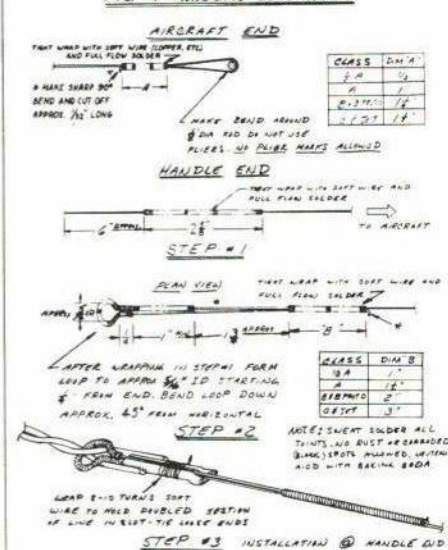 AIRCRAFT END
TIGHT WRAP WITH SOFT WIRE (COPPER, ETC)
AND FULL FLOW SOLDER
A
* MAKE SHARP 90°
BEND AND CUT OFF
APPROX. LONG
MAKE BEND AROUND
DIA ROD DO NOT USE
PLIERS. NO PLIER MARKS ALLOWED
CLASS DIM "A"
A 1
HANDLE END
TIGHT WRAP WITH SOFT WIRE AND
FULL FLOW SOLDER
6" APPROX
TO AIRCRAFT
STEP #1
PLAN VIEW
TIGHT WRAP WITH SOFT WIRE AND
FULL FLOW SOLDER
APPROX
1" MIN
APPROX
"B"
*
AFTER WRAPPING IN STEP #1 FORM
LOOP TO APPROX ID STARTING
FROM END. BEND LOOP DOWN
APPROX. 45° FROM HORIZONTAL
STEP #2
CLASS DIM "B"
½A 1"
A
2"
3"
NOTE: SWEAT SOLDER ALL
JOINTS. NO RUST OR CORRODED
(BLACK) SPOTS ALLOWED.
ACID WITH BAKING SODA
WRAP 8-10 TURNS SOFT
WIRE TO HOLD DOUBLED SECTION
OF LINE IN SLOT - TIE LOOSE ENDS
STEP #3 INSTALLATION @ HANDLE END